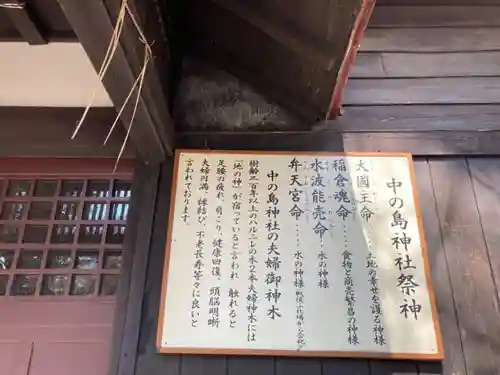 中の島神社祭神
大国主命‥‥土地の幸せを護る神様
稲倉魂命‥‥食物と商売繁昌の神様
水波能売命‥‥水の神様
弁天宮命‥‥水の神様
中の島神社の夫婦御神木
樹齢二百年以上のハルニレの木2本夫婦神木には
「地の神」が宿っていると言われ 触れると
足腰の疲れ、肩こり、健康回復、頭脳明晰
夫婦円満、縁結び、不老長寿等々に良いと
言われております。